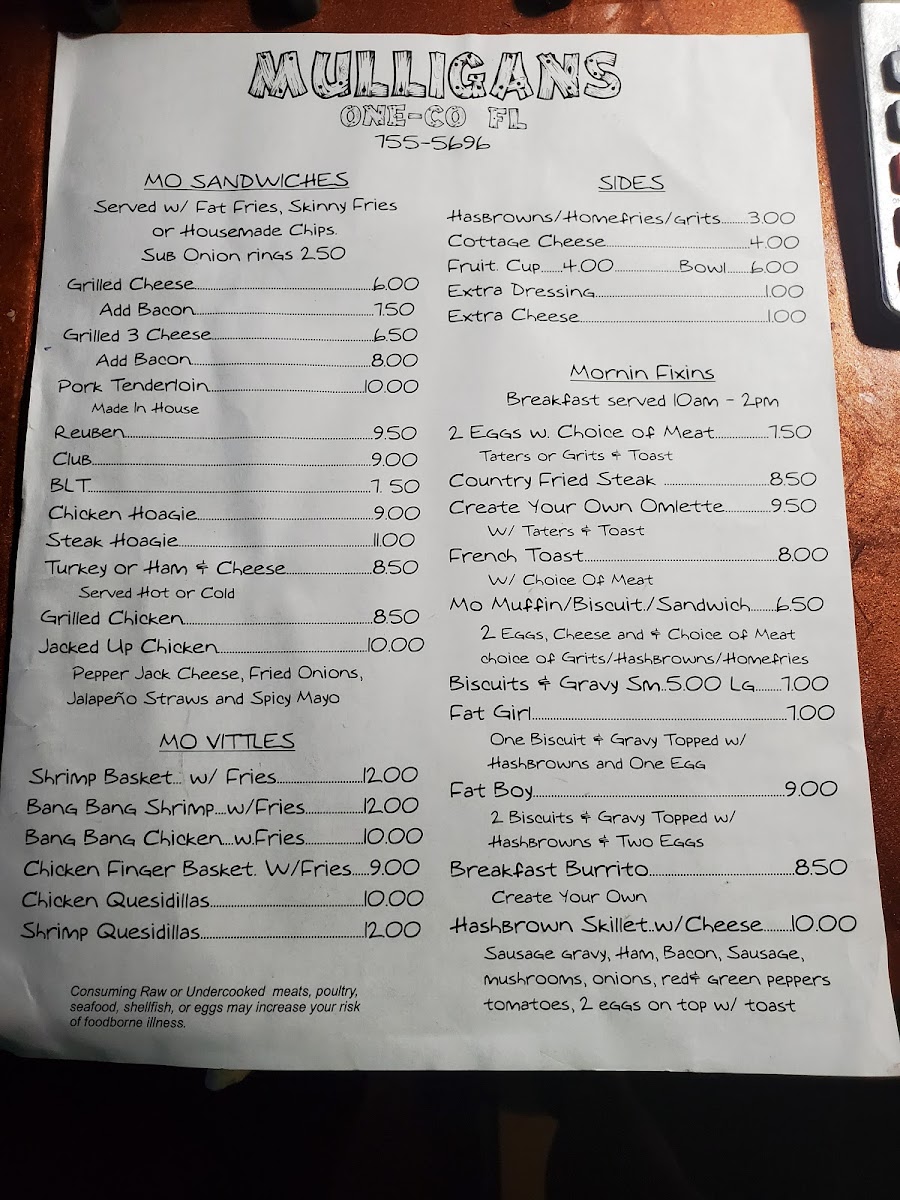 MULLIGANS
ONE-CO FL
755-5696
MO SANDWICHES
Served w/ Fat Fries, Skinny Fries
or Housemade Chips.
Sub Onion rings 2.50
Grilled Cheese...............6.00
Add Bacon...............7.50
Grilled 3 Cheese...............6.50
Add Bacon...............8.00
Pork Tenderloin...............10.00
Made In House
Reuben...............9.50
Club...............9.00
BLT...............7.50
Chicken Hoagie...............9.00
Steak Hoagie...............11.00
Turkey or Ham & Cheese...............8.50
Served Hot or Cold
Grilled Chicken...............8.50
Jacked Up Chicken...............10.00
Pepper Jack Cheese, Fried Onions,
Jalapeño Straws and Spicy Mayo
MO VITTLES
Shrimp Basket... w/ Fries...............12.00
Bang Bang Shrimp....w/Fries...............12.00
Bang Bang Chicken...w.Fries...............10.00
Chicken Finger Basket. W/Fries.....9.00
Chicken Quesidillas...............10.00
Shrimp Quesidillas...............12.00
Consuming Raw or Undercooked meats, poultry,
seafood, shellfish, or eggs may increase your risk
of foodborne illness.
SIDES
HasBrowns/Homefries/Grits........3.00
Cottage Cheese...............4.00
Fruit. Cup......4.00...............Bowl......6.00
Extra Dressing...............1.00
Extra Cheese...............1.00
Mornin Fixins
Breakfast served 10am - 2pm
2 Eggs w. Choice of Meat...............7.50
Taters or Grits & Toast
Country Fried Steak ...............8.50
Create Your Own Omlette...............9.50
W/ Taters & Toast
French Toast...............8.00
W/ Choice Of Meat
Mo Muffin/Biscuit./Sandwich.......6.50
2 Eggs, Cheese and & Choice of Meat
choice of Grits/HashBrowns/Homefries
Biscuits & Gravy Sm..5.00 LG........7.00
Fat Girl...............7.00
One Biscuit & Gravy Topped w/
HashBrowns and One Egg
Fat Boy...............9.00
2 Biscuits & Gravy Topped w/
HashBrowns & Two Eggs
Breakfast Burrito...............8.50
Create Your Own
HashBrown Skillet..w/Cheese.......10.00
Sausage gravy, Ham, Bacon, Sausage,
mushrooms, onions, red& green peppers
tomatoes, 2 eggs on top w/ toast